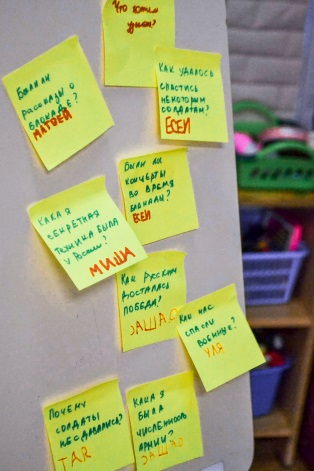 Что хотим
узнать?
Были ли
рассказы о
блокаде?
МАТВЕЙ
КАК УДАЛОСЬ
СПАСТИСЬ
НЕКОТОРЫМ
СОЛДАТАМ?
ЕСЕЙ
Были ли
концерты
во время
ЕСЕЙ
КАКАЯ
СЕКРЕТНАЯ
ТЕХНИКА БЫЛА
У России?
МИША
Как русским
досталась
победа?
Как нас
спасли
военные?
УЛЯ
Почему
солдаты
не сдавались?
ТАЯ
КАКАЯ
БЫЛА
численность
армии?